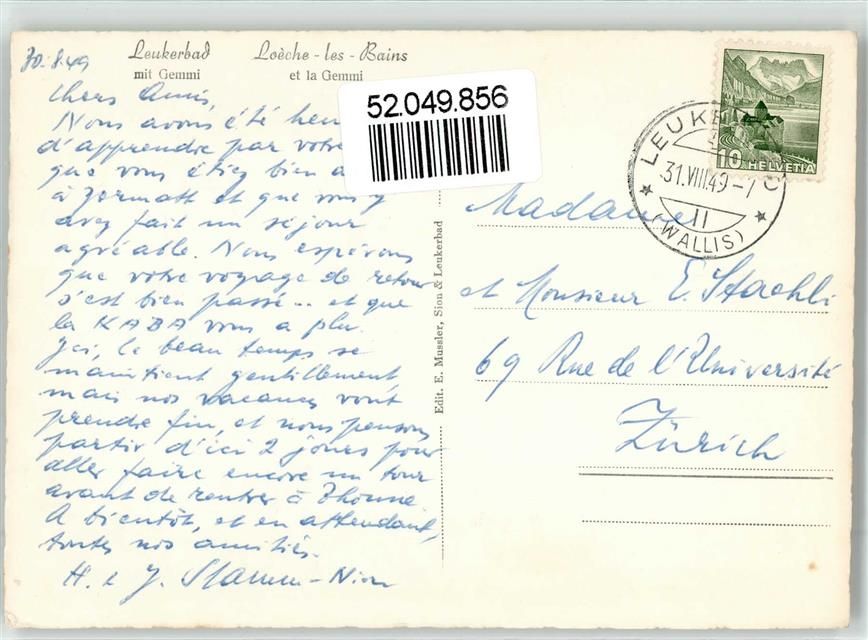 30.8.49
Leukerbad
mit Gemmi
Loèche-les-Bains
et la Gemmi
52.049.856
Chers Amis,
Nous avons été
d'apprendre par votre
que vous étiez bien
à Zermatt et que vous y
avez fait un séjour
agréable. Nous espérons
que votre voyage de retour
s'est bien passé... et que
la KABA vous a plu.
Ici, le beau temps se
maintient gentillement,
mais nos vacances vont
prendre fin, et nous pensons
partir d'ici 2 jours pour
aller faire encore un tour
avant de rentrer à Thoune
A bientôt, et en attendant,
toutes nos amitiés.
H. e J. Stamm-
Edit. E. Mussler, Sion & Leukerbad
10 HELVETIA
LEUKE
31.VIII.49-7
II
(WALLIS)
Madame
et Monsieur E. Staehli
69 Rue de l'Université
Zürich